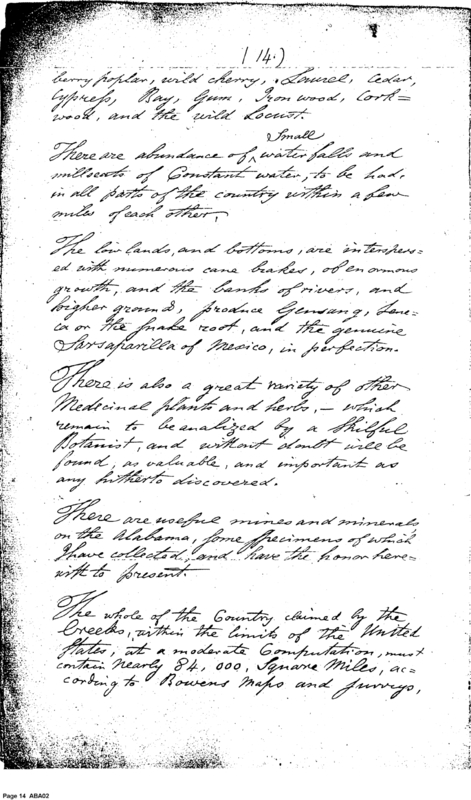 (14.)
berry poplar, wild cherry, Laurel, Cedar,
Cypress, Bay, Gum, Iron wood, Cork=
wood, and the wild Locust.
Small
There are abundance of ^ water falls and
millseats of Constant water, to be had,
in all parts of the country within a few
miles of each other.
The low lands, and bottoms, are interspers=
ed with numerous cane brakes, of enormous
growth, and the banks of rivers, and
higher ground, produce Gensang, Sene=
ca or the snake root, and the genuine
Sarsaparilla of Mexico, in perfection.
There is also a great variety of other
Medecinal plants and herbs, — which
remain to be analized by a Skilful
Botanist, and without doubt will be
found, as valuable, and important as
any hitherto discovered.
There are useful mines and minerals
on the Alabama, some specimens of which
I have collected, and have the honor here=
with to present.
The whole of the Country claimed by the
Creeks, within the limits of the United
States, at a moderate Computation, must
contain nearly 84,000, Square Miles, ac=
cording to Bowens Maps and surveys,
Page 14 ABA02